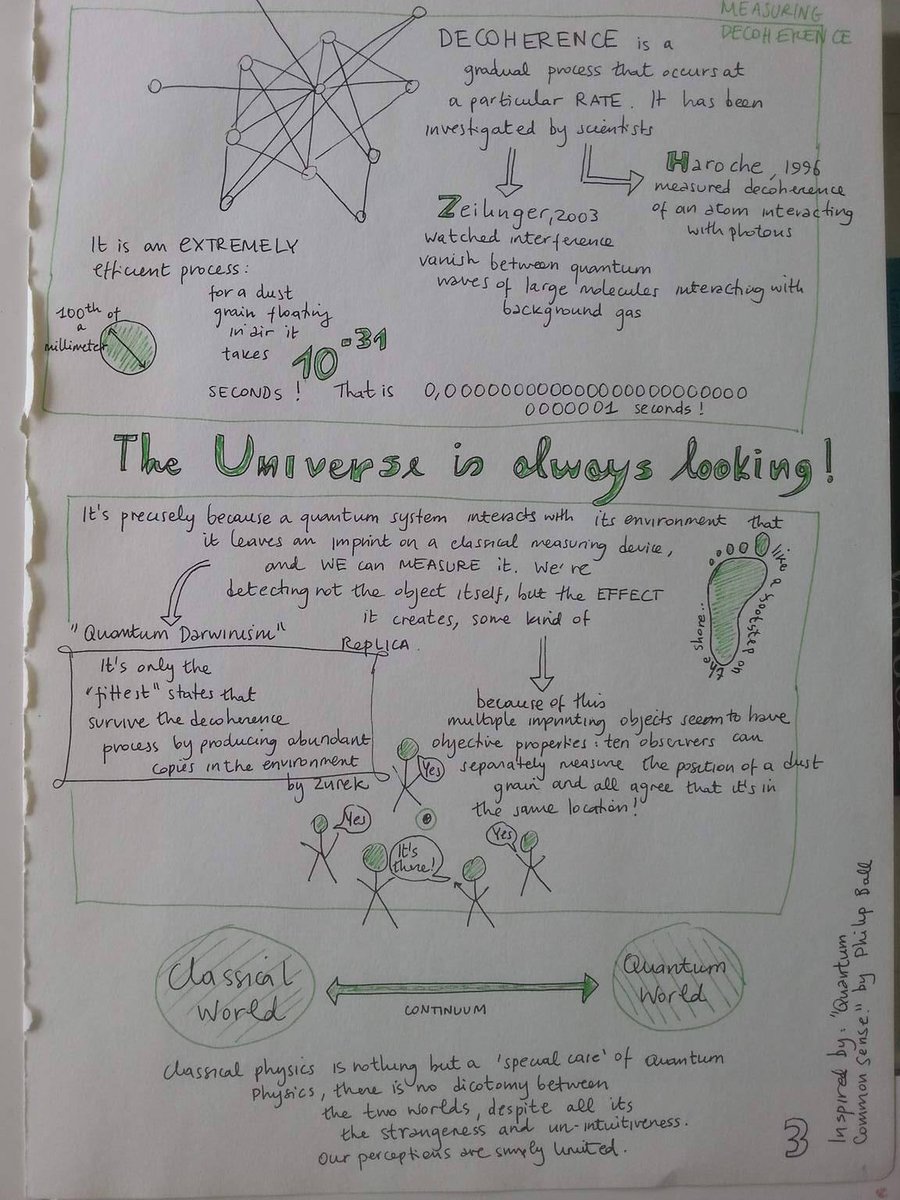 MEASURING
DECOHERENCE
DECOHERENCE is a
gradual process that occurs at
a particular RATE. It has been
investigated by scientists
Haroche, 1996
measured decoherence
of an atom interacting
with photons
Zeilinger, 2003
watched interference
vanish between quantum
waves of large molecules interacting with
background gas
It is an EXTREMELY
efficient process:
100th of
a
millimeter
for a dust
grain floating
in air it
takes 10-31
SECONDS! That is 0,000000000000000000000000
0000001 seconds!
The Universe is always looking!
It's precisely because a quantum system interacts with its environment that
it leaves an imprint on a classical measuring device,
and WE can MEASURE it. We're
detecting not the object itself, but the EFFECT
it creates, some kind of
REPLICA.
like a footstep on
the shore..
"Quantum Darwinism"
It's only the
"fittest" states that
survive the decoherence
process by producing abundant
copies in the environment
by Zurek
because of this
multiple imprinting objects seem to have
objective properties: ten observers can
separately measure the position of a dust
grain and all agree that it's in
the same location!
Yes
Yes
It's there!
Yes
Classical
World
CONTINUUM
Quantum
World
Classical physics is nothing but a 'special case' of Quantum
Physics, there is no dicotomy between
the two worlds, despite all its
the strangeness and un-intuitiveness.
Our perceptions are simply limited.
3
Inspired by: "Quantum
Common Sense." by Philip Ball